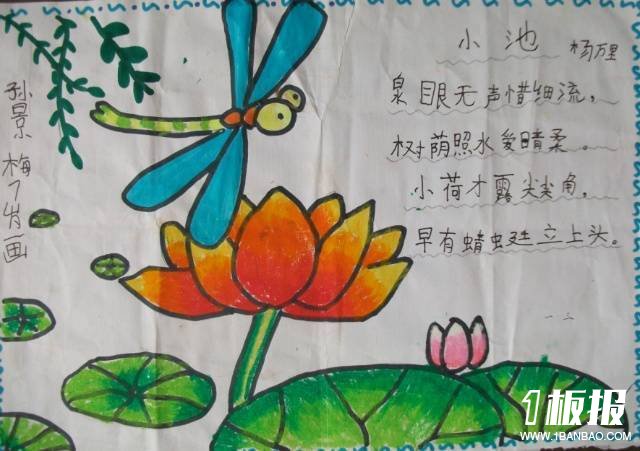 小池 杨万里
泉眼无声惜细流，
树荫照水爱晴柔。
小荷才露尖尖角，
早有蜻蜓立上头。
孙景梅7岁画
1板报
WWW.1BANBAO.COM